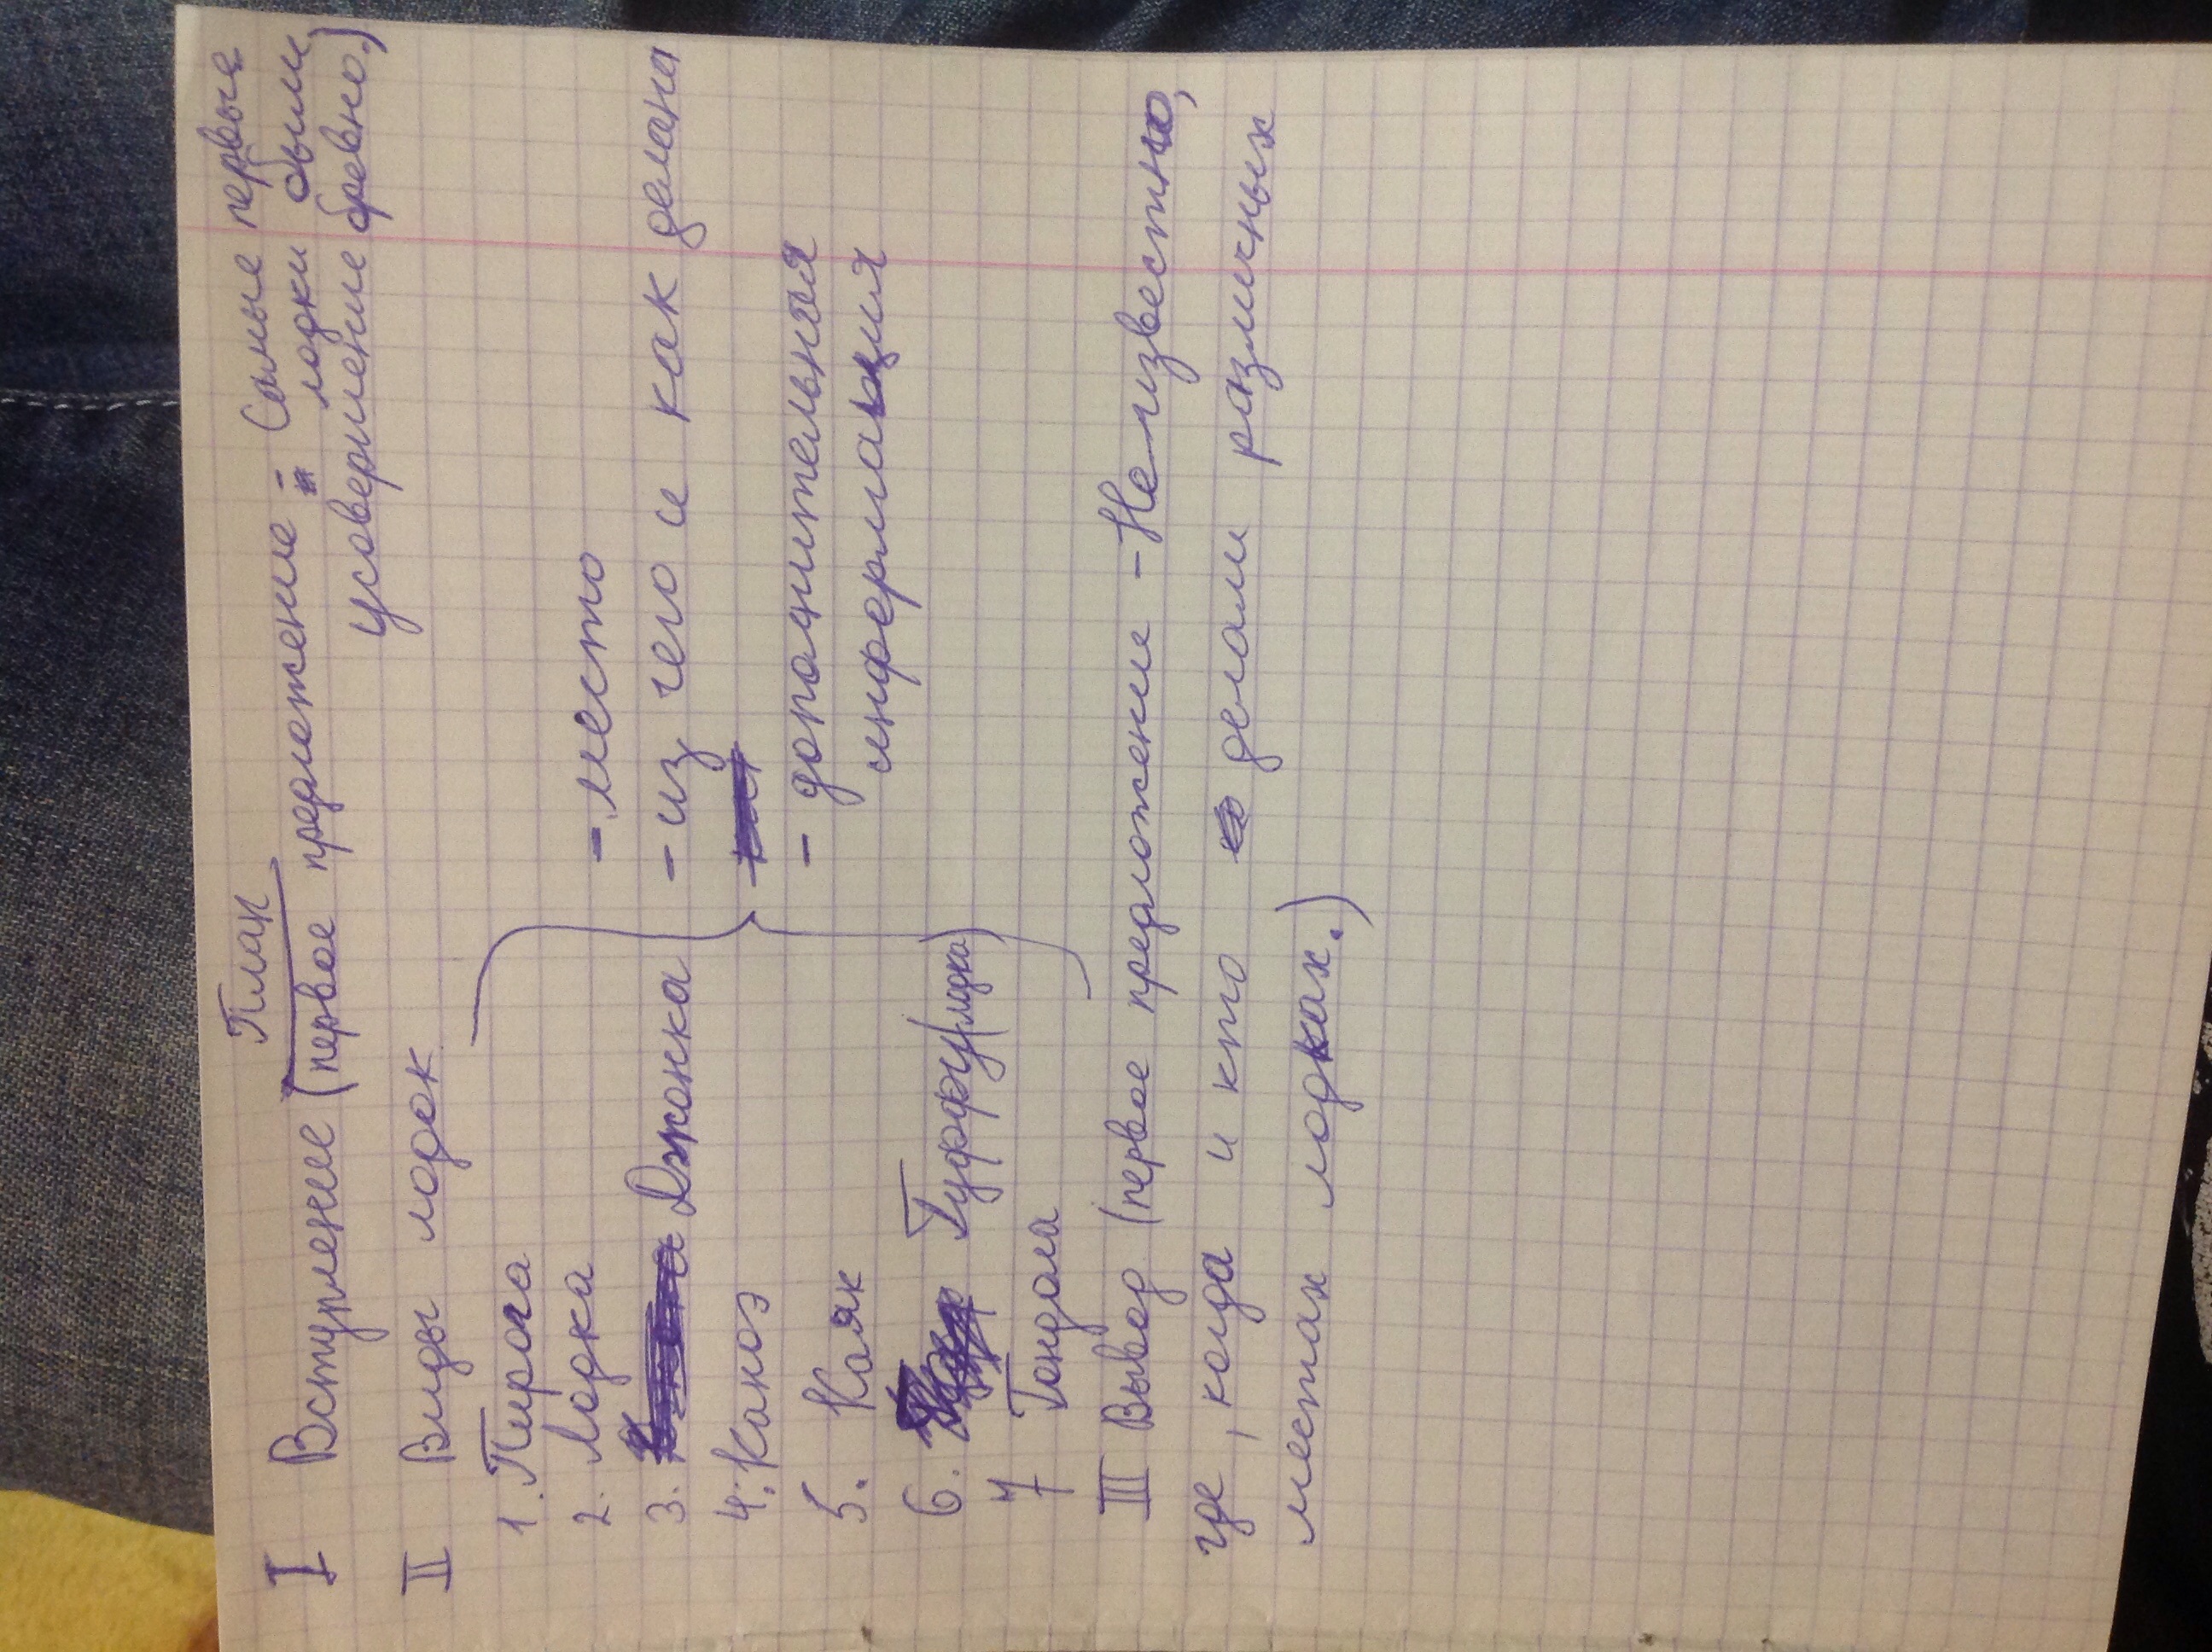 План
I Вступление (первое предложение - Самые первые
лодки были
усовершение бревно.)
II Виды лодок
1. Пирога
2. Лодка
3. Джонка
4. Каноэ
5. Каяк
6. Гуффу (лодка)
7 Гондола
- место
- из чего и как делана
- допонительная
информация
III Вывод (первое предложение - Неизвестно,
где, когда и кто делали различных
местах лодках.)